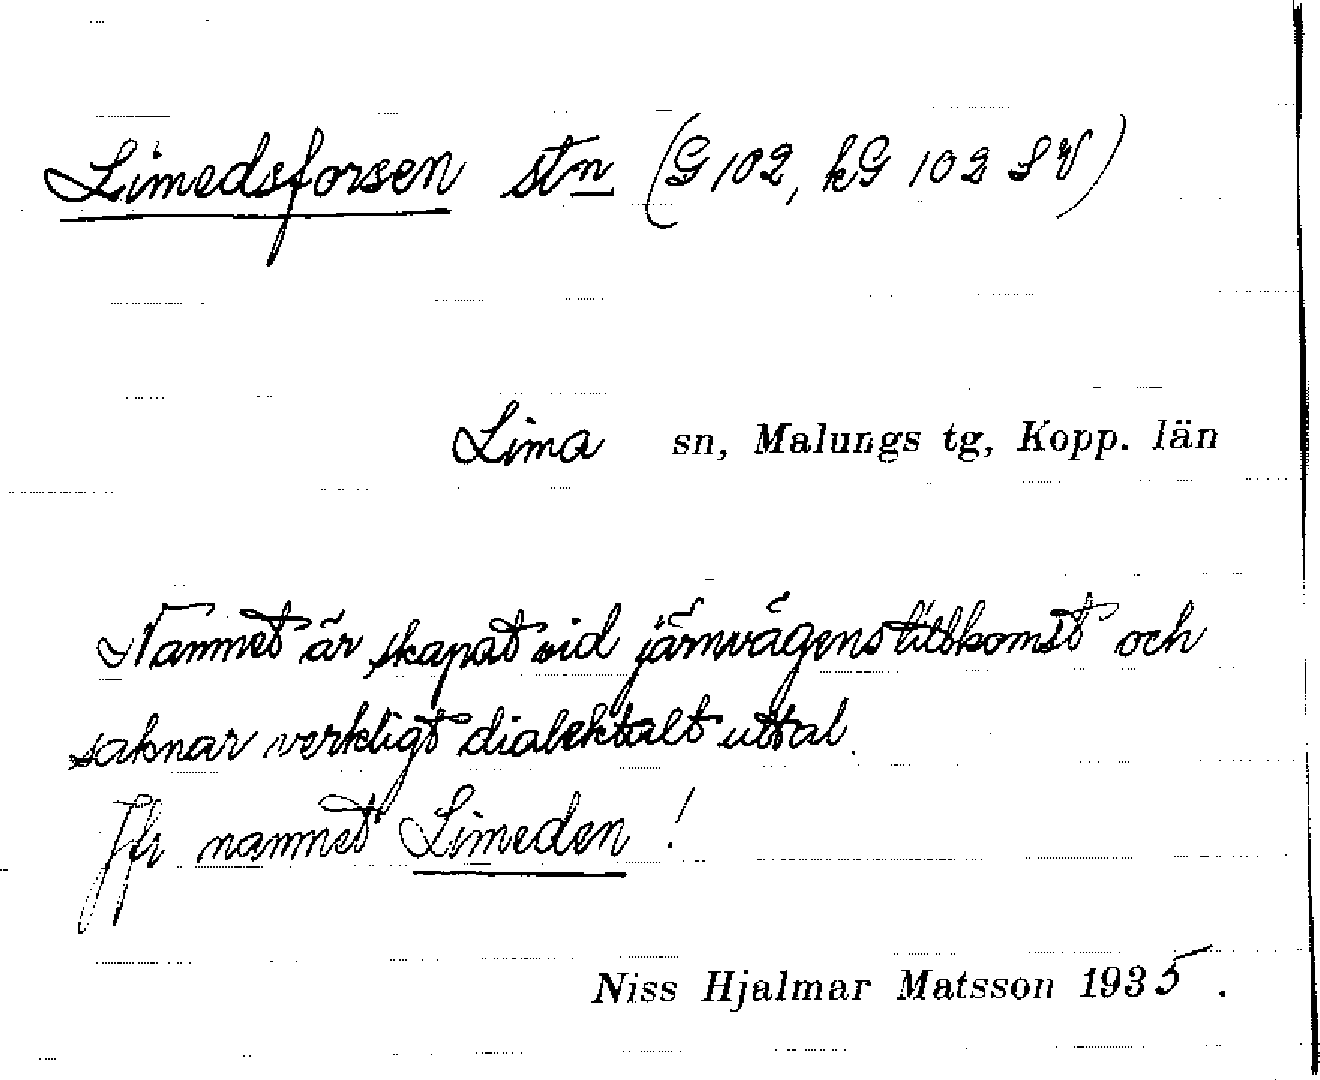 Limedsforsen stn (G 102, kG 102 SV)
Lima sn, Malungs tg, Kopp. län
Namnet är skapat vid järnvägens tillkomst och
saknar verkligt dialektalt uttal.
Jfr namnet Limeden!
Niss Hjalmar Matsson 1935.